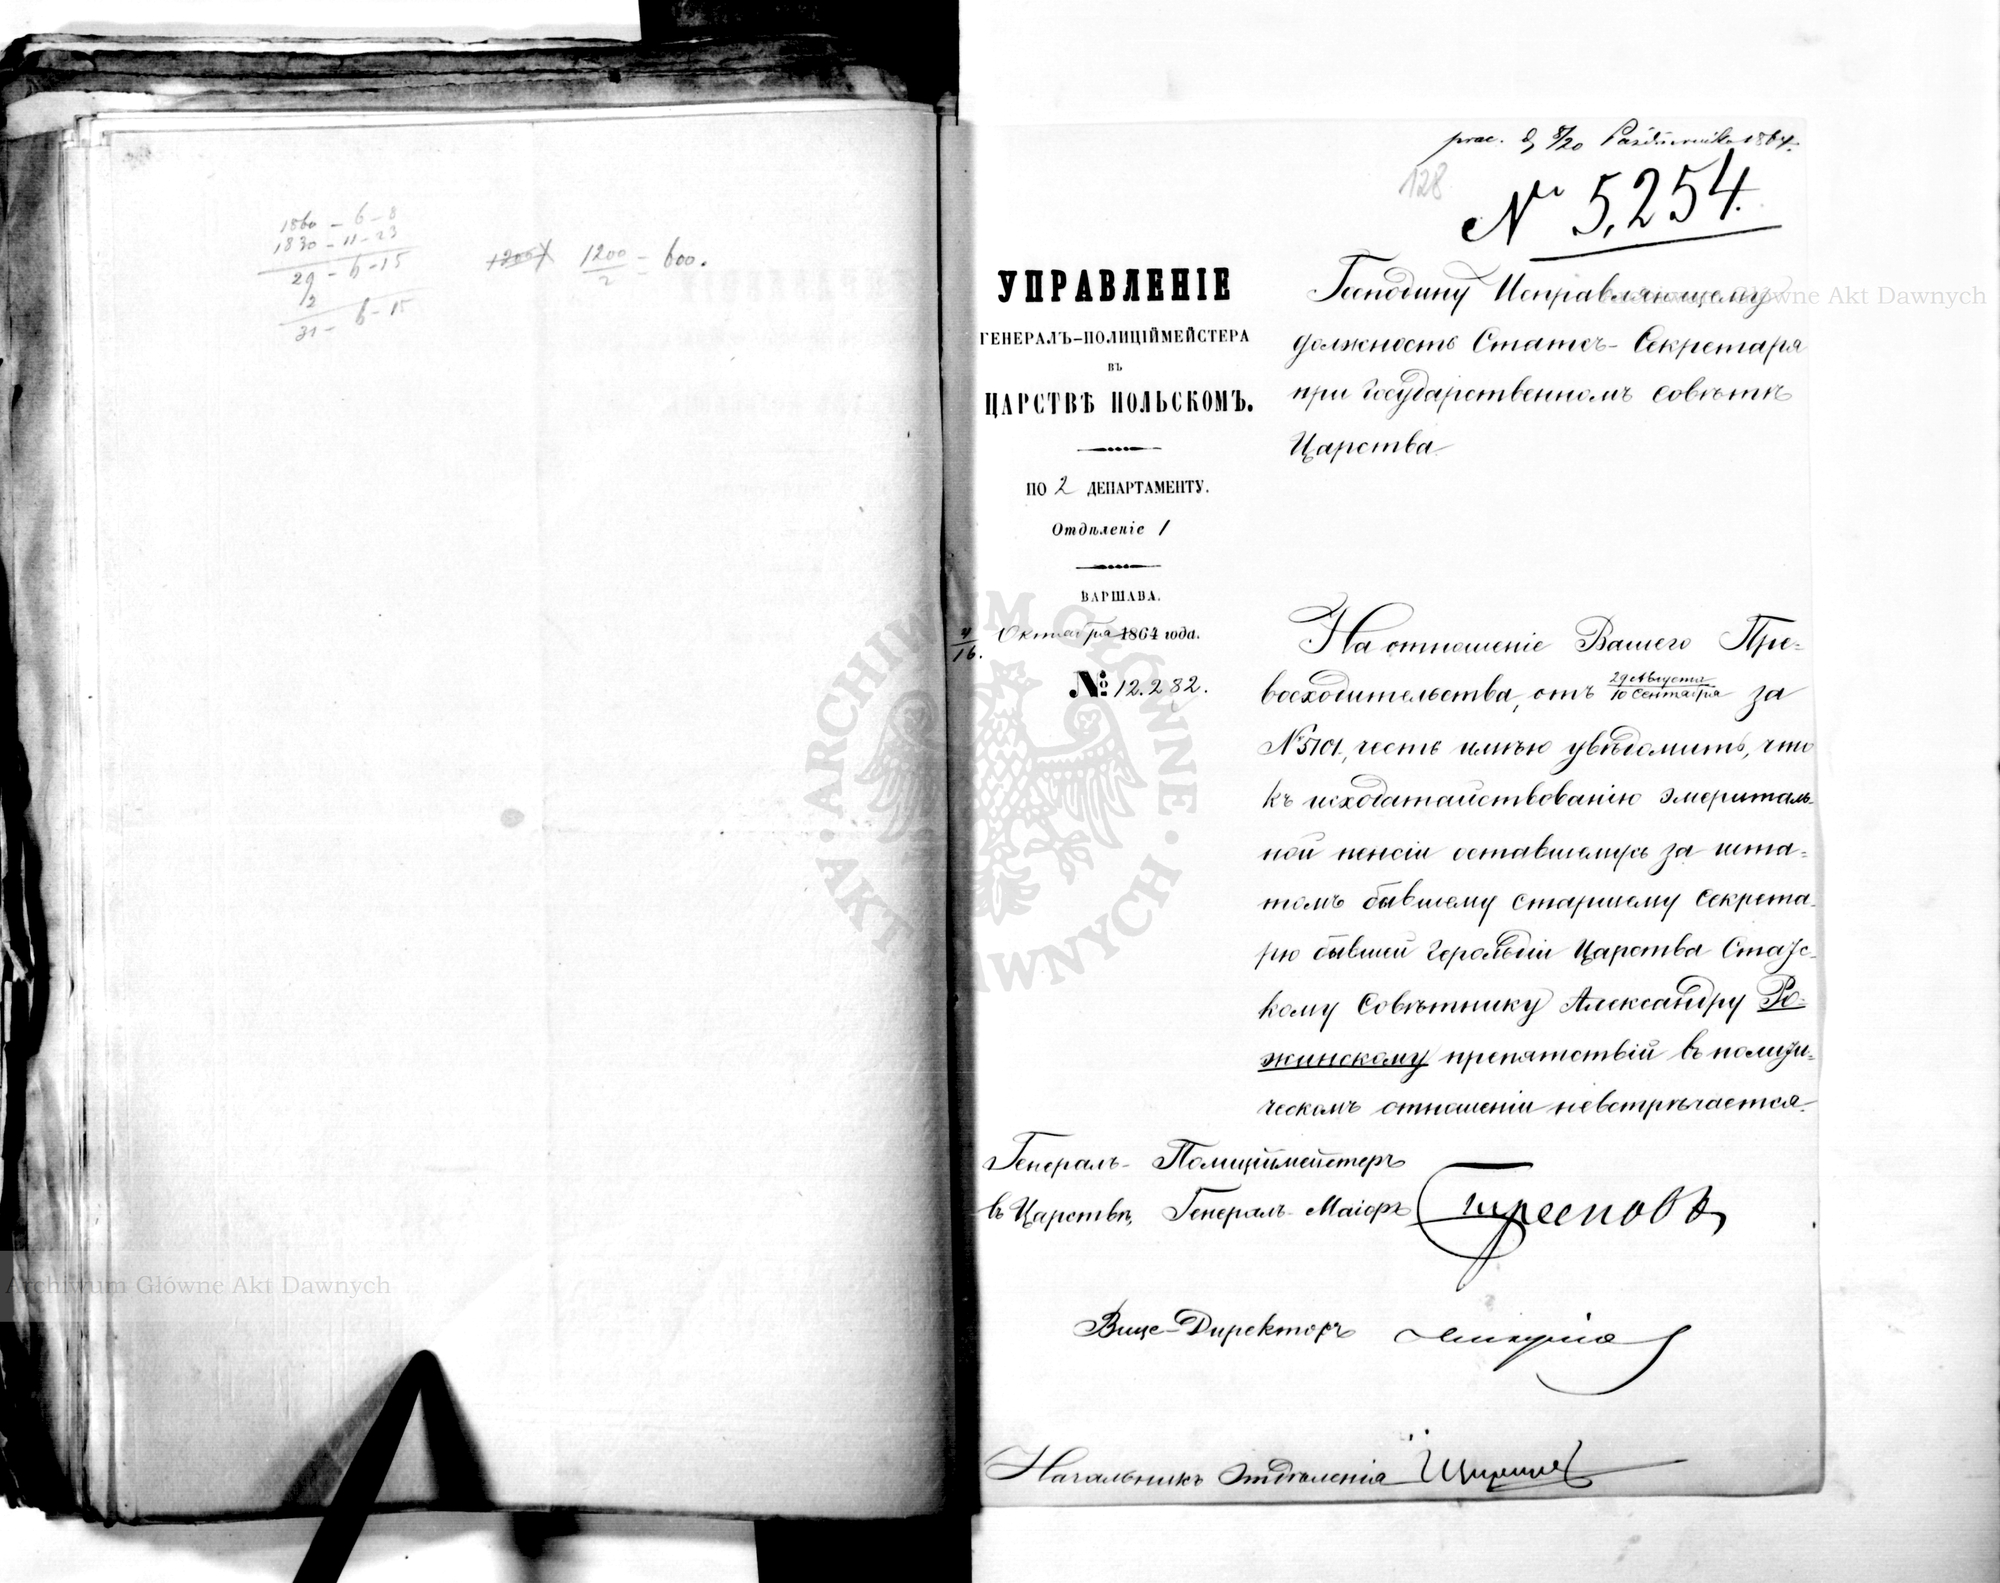 1860 – 6 – 8
1830 – 11 – 23
29 – 6 – 15
2
31 – 6 – 15
1200
2
= 600.
128
prac. d. 8/20 Października 1864.
№ 5,254.
УПРАВЛЕНІЕ
ГЕНЕРАЛЪ-ПОЛИЦІЙМЕЙСТЕРА
ВЪ
ЦАРСТВѢ ПОЛЬСКОМЪ.
ПО 2 ДЕПАРТАМЕНТУ.
Отдѣленіе 1
ВАРШАВА.
4/16. Октября 1864 года.
№ 12.282.
Господину Исправляющему
должность Статсъ-Секретаря
при Государственномъ Совѣтѣ
Царства
На отношеніе Вашего Пре=
восходительства, отъ 29 Августа/10 Сентября за
№ 5101, честь имѣю увѣдомить, что
къ исходатайствованію эмериталь=
ной пенсіи оставшемуся за шта=
томъ бывшему старшему Секрета=
рю бывшей Герольдіи Царства Статс=
кому Совѣтнику Александру Ро=
жинскому препятствій въ полити=
ческомъ отношеніи невстрѣчается.
Генералъ-Полиціймейстеръ
въ Царствѣ, Генералъ-Маіоръ Треповъ
Вице-Директоръ
Начальникъ Отдѣленія
Archiwum Główne Akt Dawnych
Archiwum Główne Akt Dawnych
ARCHIWUM GŁÓWNE AKT DAWNYCH